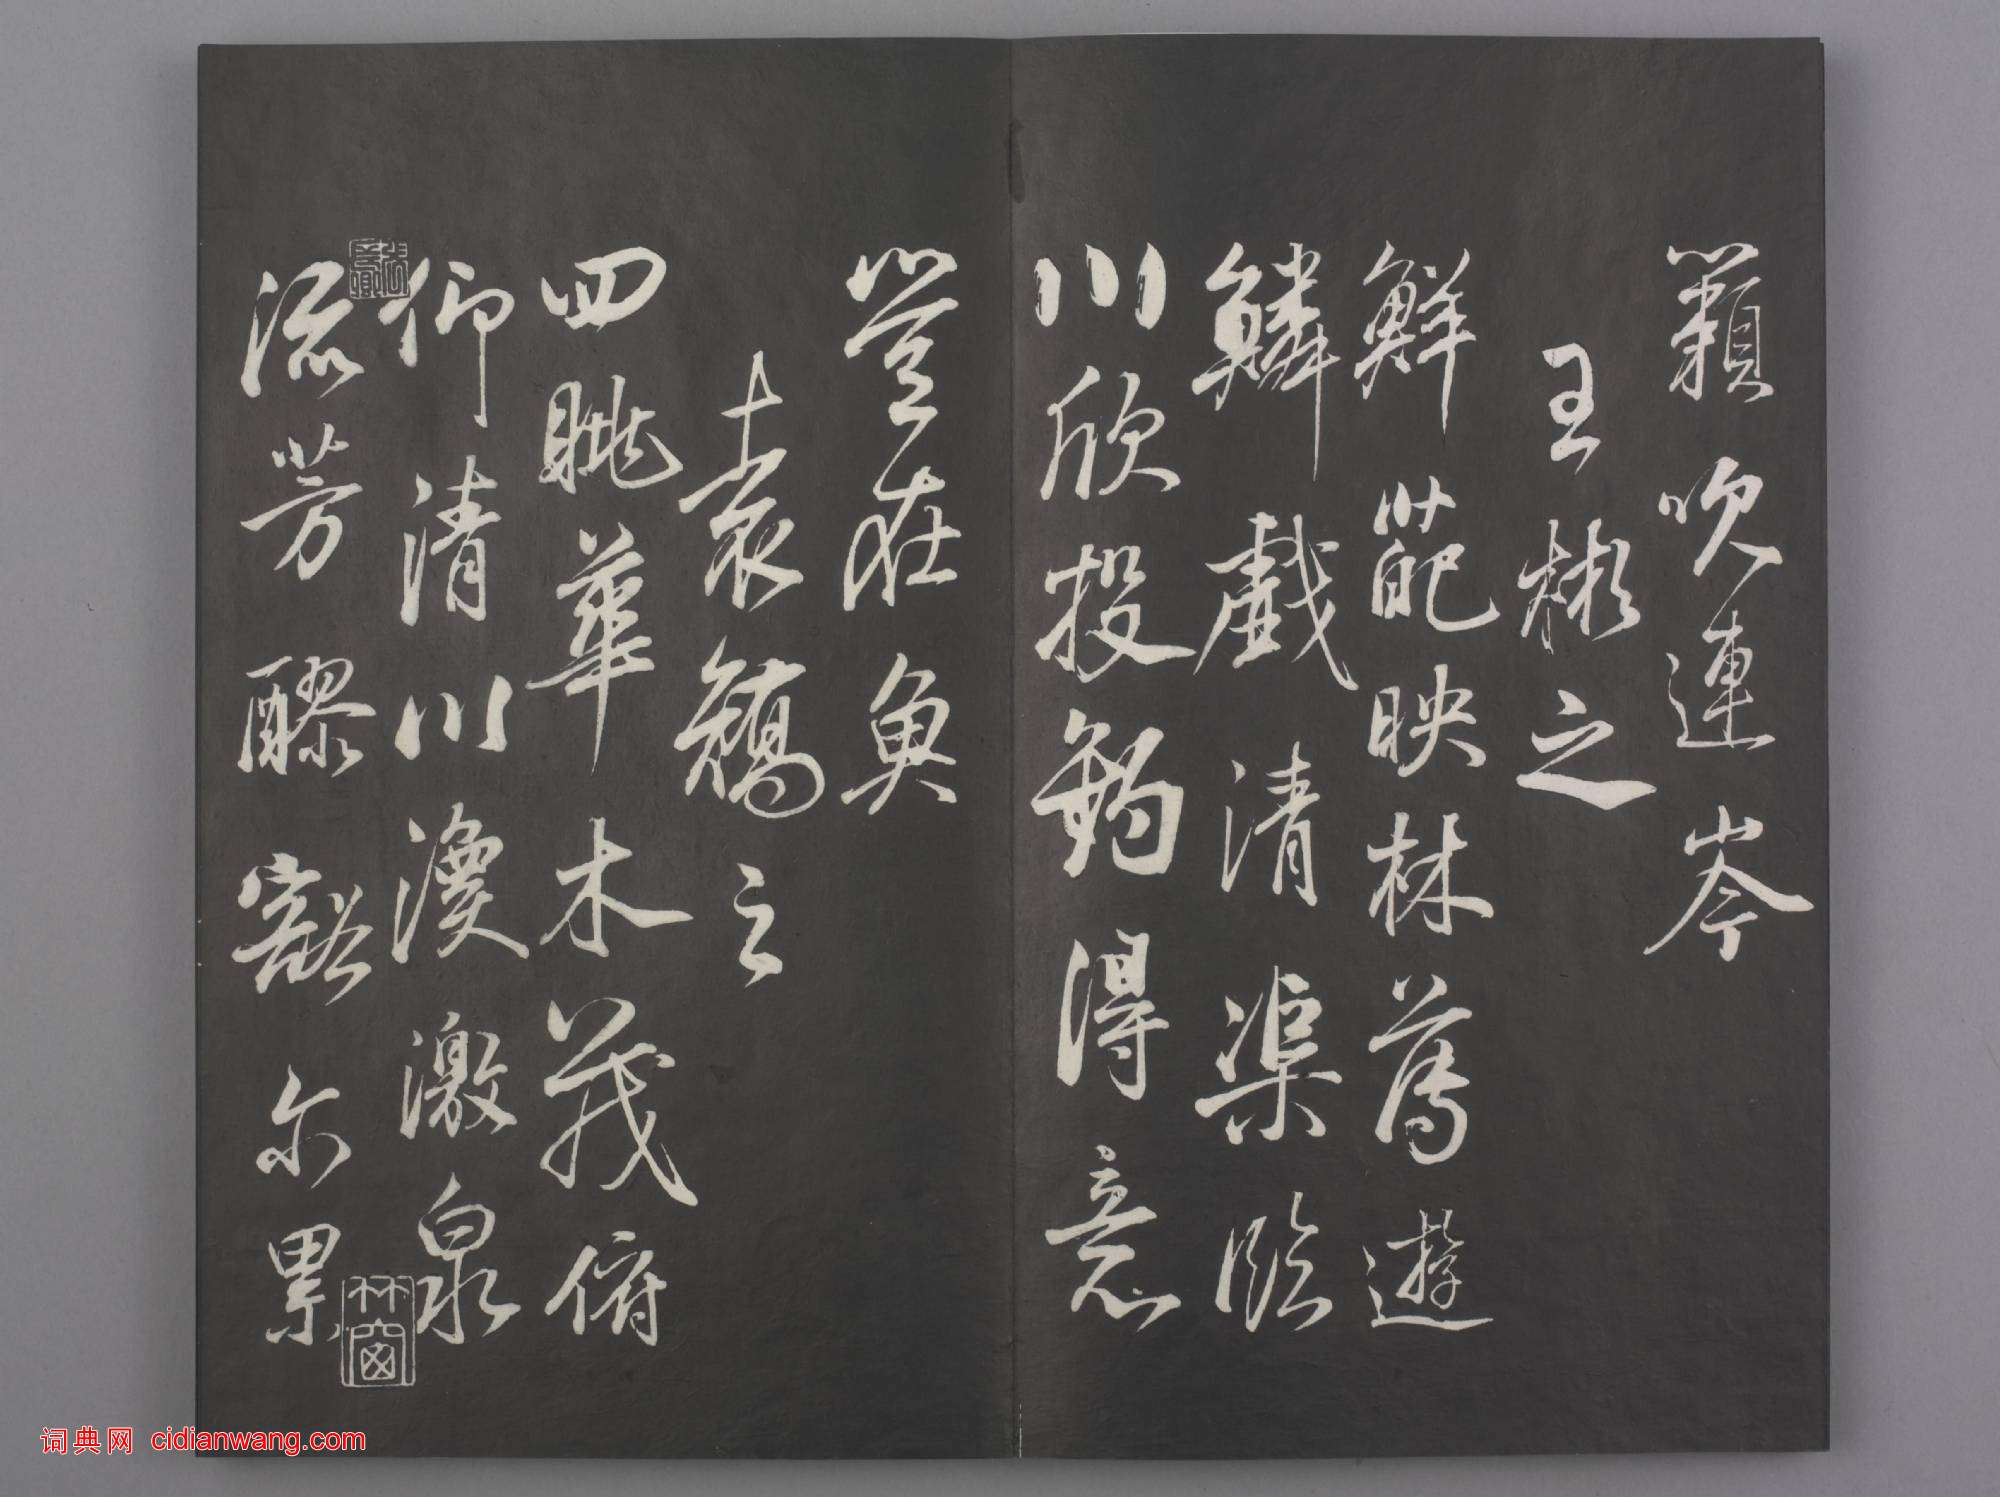 籟吹連岑
王彬之
鮮葩映林薄遊
鱗戲清渠臨
川欣投釣得意
豈在魚
袁嶠之
四眺華木茂俯
仰清川渙激泉
流芳醪豁尓累
竹窗
词典网 cidianwang.com